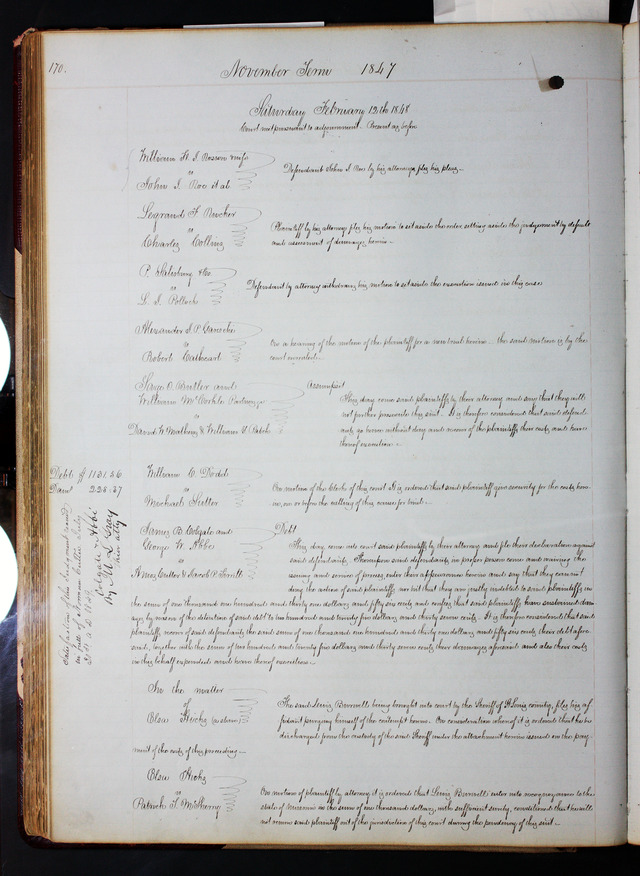 170.
November Term 1847
Saturday February 12th 1848
Court met pursuant to adjournment. Present as before
William H. I. wife
vs
John I. Roe et al
Defendant John I. Roe by his attorney files his plea.
Legrand F. Rucker
vs
Charles Collins
Plaintiff by his attorney files his motion to set aside the order setting aside the judgment by default
and assessment of damages herein
P. Salisbury & Co
vs
L. I. Pollock
Defendant by attorney withdraws his motion to set aside the execution issued in this case
Alexander I. P. Garesche
vs
Robert Cathcart
On a hearing of the motion of the plaintiff for a new trial herein the said motion is by the
court overruled
O. Butler and
William McCorkle Partners
vs
David W. & William
Assumpsit
This day come said plaintiffs by their attorney and say that they will
not further prosecute this suit. It is therefore considered that said defend-
ants go hence without day and recover of the plaintiffs their costs and have
thereof execution.
William C. Dodds
vs
Michael Sutter
On motion of the clerk of this court it is ordered that said plaintiff give security for the costs here-
in, on or before the calling of this cause for trial.
Debt $1131.56
Dam 225.37
Satisfaction of this Judgment
in full
A D 1849
Colgate & Abbe
By M L Gray
their atty
James B. Colgate and
George W. Abbe
vs
Amos Cutler & Jacob P.
Debt
This day come into court said plaintiffs by their attorney and file their declaration against
said defendants. Thereupon said defendants in proper person come and waiving the
issuing and service of process enter their appearance herein and say that they cannot
deny the action of said plaintiffs nor but that they are justly indebted to said plaintiffs in
the sum of one thousand one hundred and thirty one dollars and fifty six cents and confess that said plaintiffs have sustained dam-
ages by reason of the detention of said debt to two hundred and twenty five dollars and thirty seven cents. It is therefore considered that said
plaintiffs recover of said defendants the said sum of one thousand one hundred and thirty one dollars and fifty six cents their debt afore-
said, together with the sum of two hundred and twenty five dollars and thirty seven cents their damages aforesaid and also their costs
in this behalf expended and have thereof execution.
In the matter
of
Elsa Hicks
The said Lewis Burwell being brought into court by the Sheriff of St Louis county, files his af-
fidavit purging himself of the contempt herein. On consideration whereof it is ordered that he be
discharged from the custody of the said Sheriff under the attachment herein issued on the pay-
ment of the costs of this proceeding
Elsa Hicks
vs
Patrick T. McSherry
On motion of plaintiff by attorney it is ordered that Lewis Burwell enter into recognizance to the
state of Missouri in the sum of one thousand dollars with sufficient surety, conditioned that he will
not remove said plaintiff out of the jurisdiction of this court during the pendency of this suit.